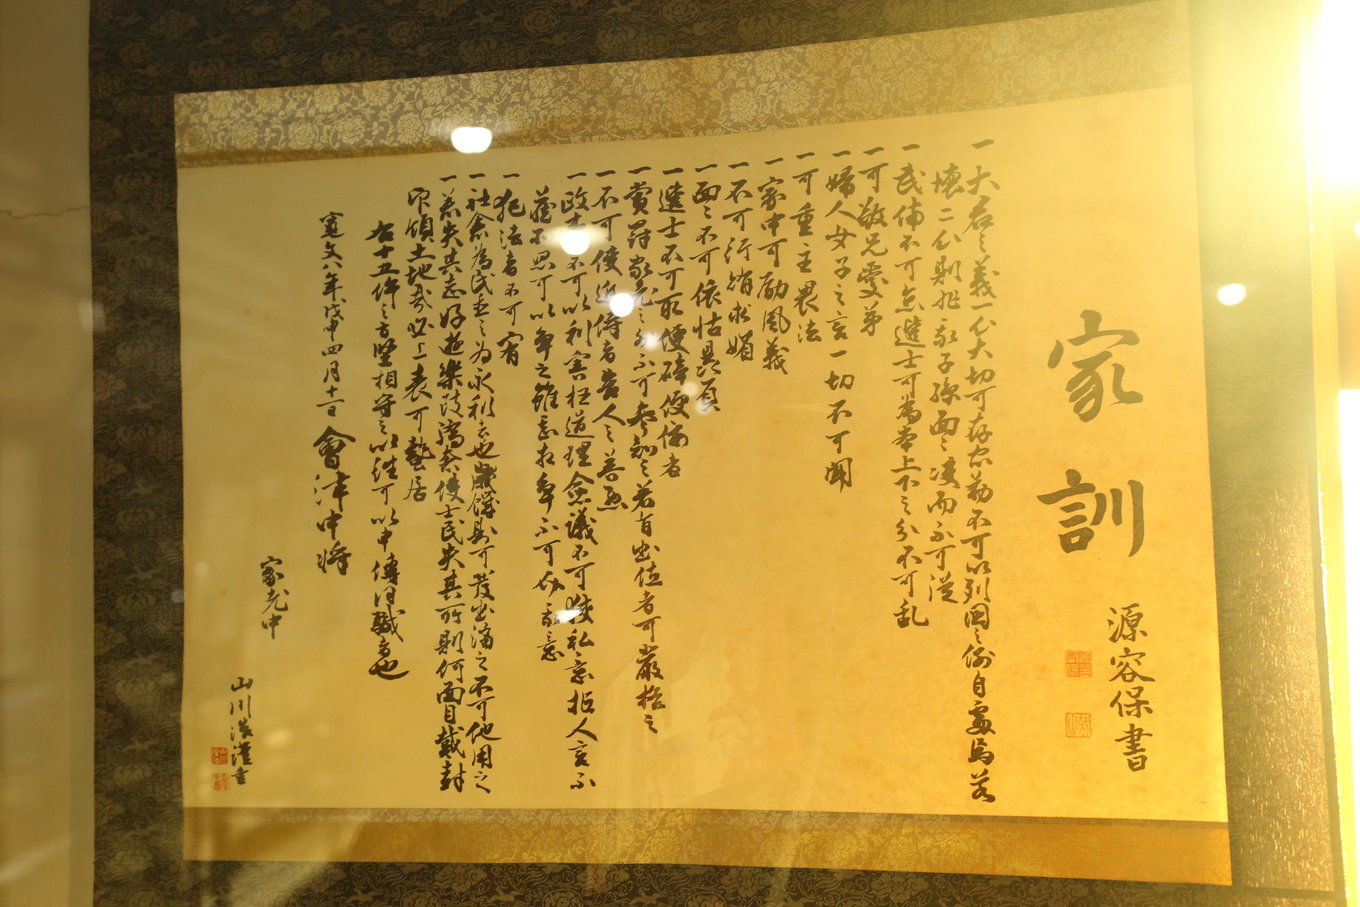 家訓
源容保書
一大君之義一心大切可存忠勤不可以列國之例自處焉若
懐二心則非我子孫面々決而不可從
一武備不可怠選士可為本上下之分不可乱
一可敬兄愛弟
一婦人女子之言一切不可聞
一可重主畏法
一家中可励風義
一不可行賄求媚
一面々不可依怙贔屓
一選士不可取便辟便佞者
一賞罰家老之外不可参知之若有出位者可嚴格之
一不可使近侍者告人之善悪
一政事不可以利害枉道理僉議不可挟私意拒人言不
蔵所思可以争之雖甚相争不可介我意
一犯法者不可宥
一社倉為民置之為永利者也歳饑則可發出済之不可他用之
一若失其志好遊樂致驕奢使士民失其所則何面目戴封
印領土地哉必上表可蟄居
右十五件之旨堅相守之以往可以申傳同職者也
寛文八年戊申四月十一日
會津中将
家老中
山川浩謹書